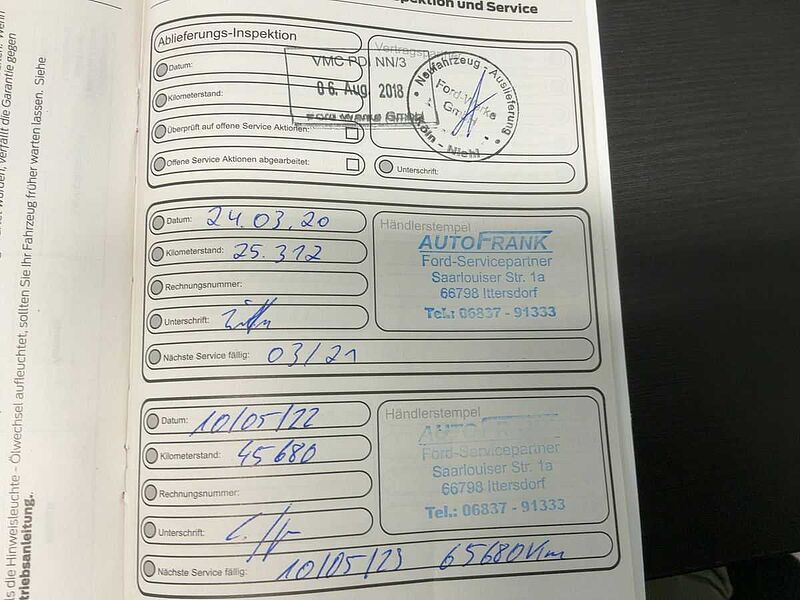 pektion und Service
Ablieferungs-Inspektion
Datum:
VMC PD. NN/3
06. Aug. 2018
Ford-Werke GmbH
Kilometerstand:
Überprüft auf offene Service Aktionen:
Offene Service Aktionen abgearbeitet:
Vertragspartner
Neufahrzeug - Auslieferung
Ford-Werke
GmbH
Köln - Niehl
Unterschrift:
Datum: 24.03.20
Kilometerstand: 25.312
Rechnungsnummer:
Unterschrift:
Nächste Service fällig: 03/21
Händlerstempel
AUTOFRANK
Ford-Servicepartner
Saarlouiser Str. 1a
66798 Ittersdorf
Tel.: 06837 - 91333
Datum: 10/05/22
Kilometerstand: 45680
Rechnungsnummer:
Unterschrift:
Nächste Service fällig: 10/05/23 65680Km
Händlerstempel
AUTOFRANK
Ford-Servicepartner
Saarlouiser Str. 1a
66798 Ittersdorf
Tel.: 06837 - 91333
verfällt die Garantie gegen
sollten Sie Ihr Fahrzeug früher warten lassen. Siehe
s die Hinweisleuchte - Ölwechsel aufleuchtet,
triebsanleitung.